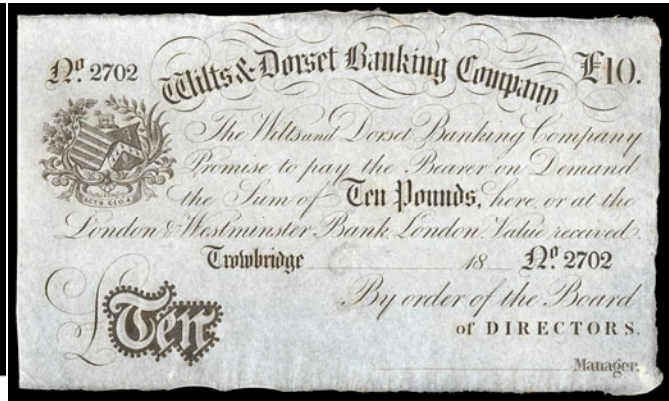 No. 2702 Wilts & Dorset Banking Company £10.
The Wilts and Dorset Banking Company
Promise to pay the Bearer on Demand
the Sum of Ten Pounds, here, or at the
ACTS. GEO. 4
London & Westminster Bank, London. Value received.
Trowbridge 18 No. 2702
By order of the Board
£Ten
of DIRECTORS.
Manager.